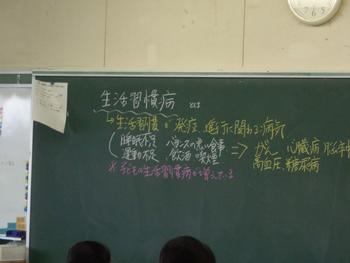 生活習慣病 とは
↳生活習慣が発症、進行に関わる病気
(睡眠不足 バランスの悪い食事 ⇒ がん 心臓病
運動不足、飲酒 喫煙 高血圧、糖尿病
※子どもの生活習慣病が増えている